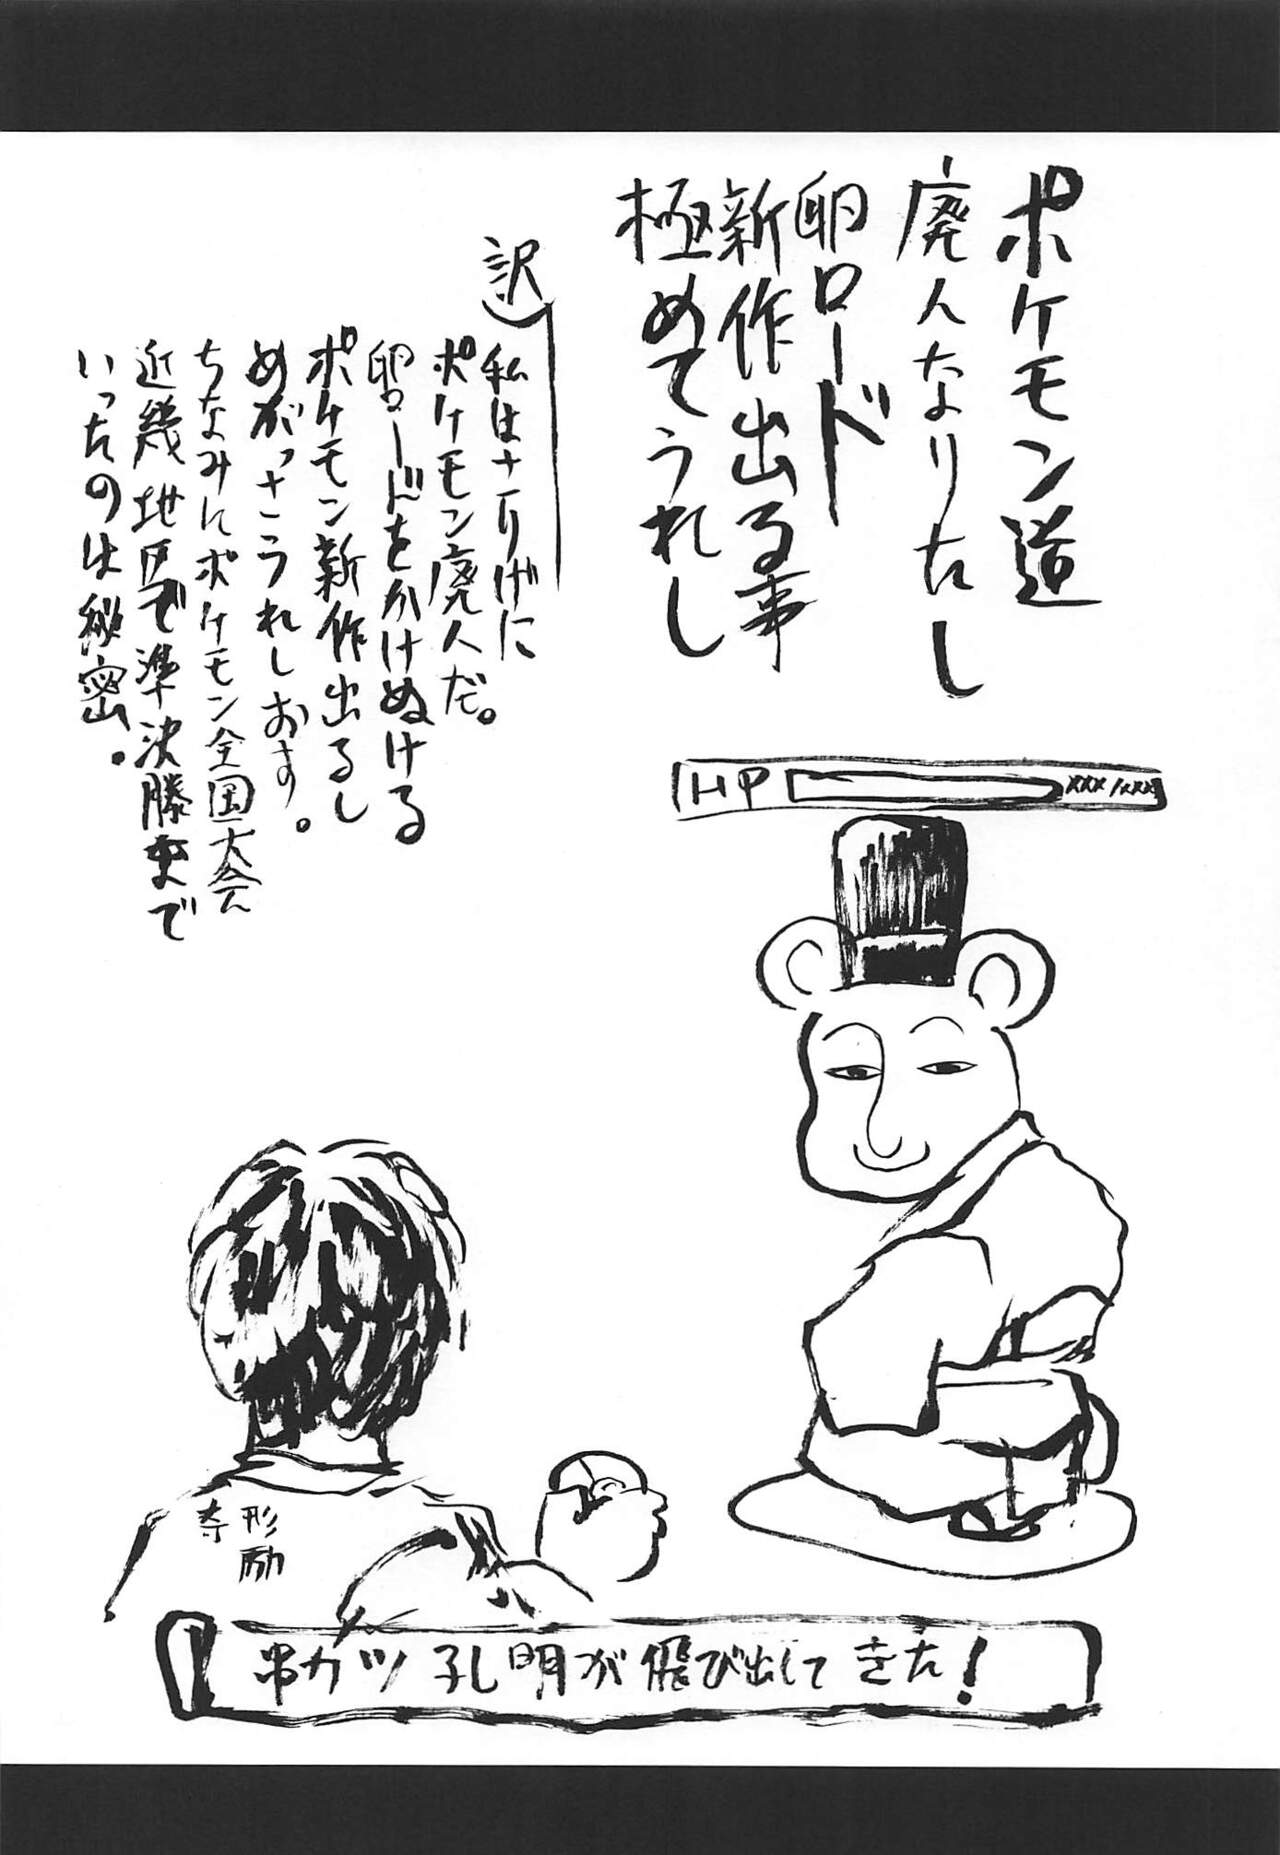 ポケモン道
廃人なりたし
卵ロード
新作出る事
極めてうれし
訳
私はさりげに
ポケモン廃人だ。
卵ロードをかけぬける
ポケモン新作出るし
めがっさうれしおす。
ちなみにポケモン全国大会
近幾地区で準決勝まで
いったのは秘密。
HP
xxx/xxx
形励
奈
串カツ孔明が飛び出してきた!